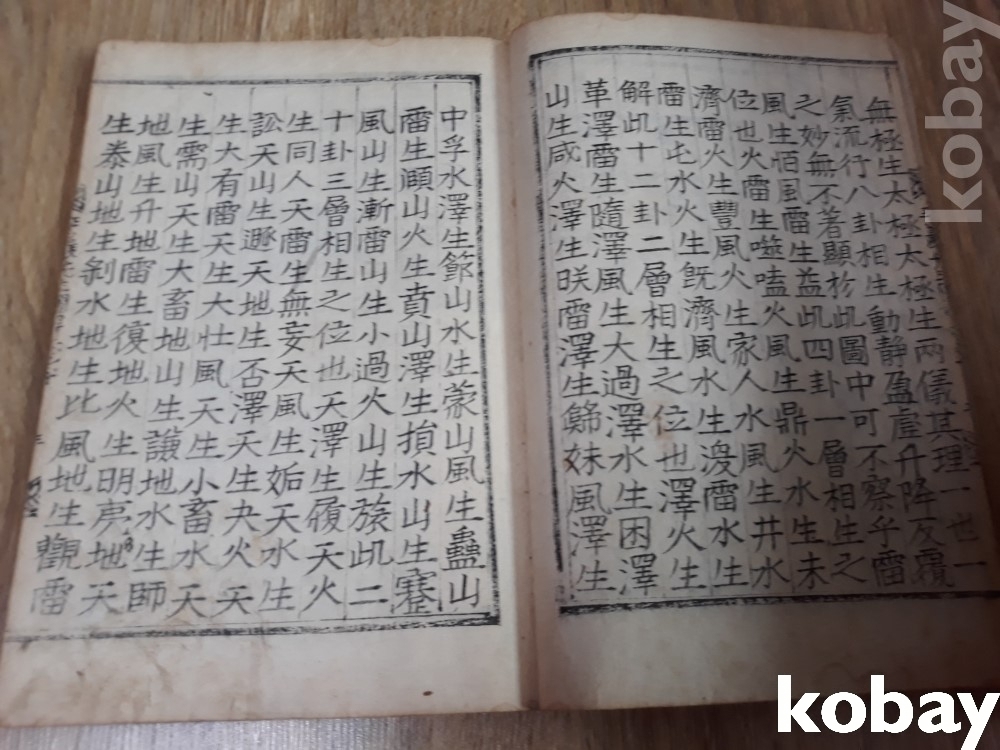 無極生太極太極生兩儀其理一也一
氣流行八卦相生動靜盈虛升降反覆
之妙無不著顯於此圖中可不察乎雷
風生恒風雷生益此四卦一層相生之
位也火雷生噬嗑火風生鼎火水生未
濟雷火生豐風火生家人水風生井水
雷生屯水火生旣濟風水生渙雷水生
解此十二卦二層相生之位也澤火生
革澤雷生隨澤風生大過澤水生困澤
山生咸火澤生睽雷澤生歸妹風澤生
中孚水澤生節山水生蒙山風生蠱山
雷生頤山火生賁山澤生損水山生蹇
風山生漸雷山生小過火山生旅此二
十卦三層相生之位也天澤生履天火
生同人天雷生無妄天風生姤天水生
訟天山生遯天地生否澤天生夬火天
生大有雷天生大壯風天生小畜水天
生需山天生大畜地山生謙地水生師
地風生升地雷生復地火生明夷地天
生泰山地生剝水地生比風地生觀雷
kobay
kobay